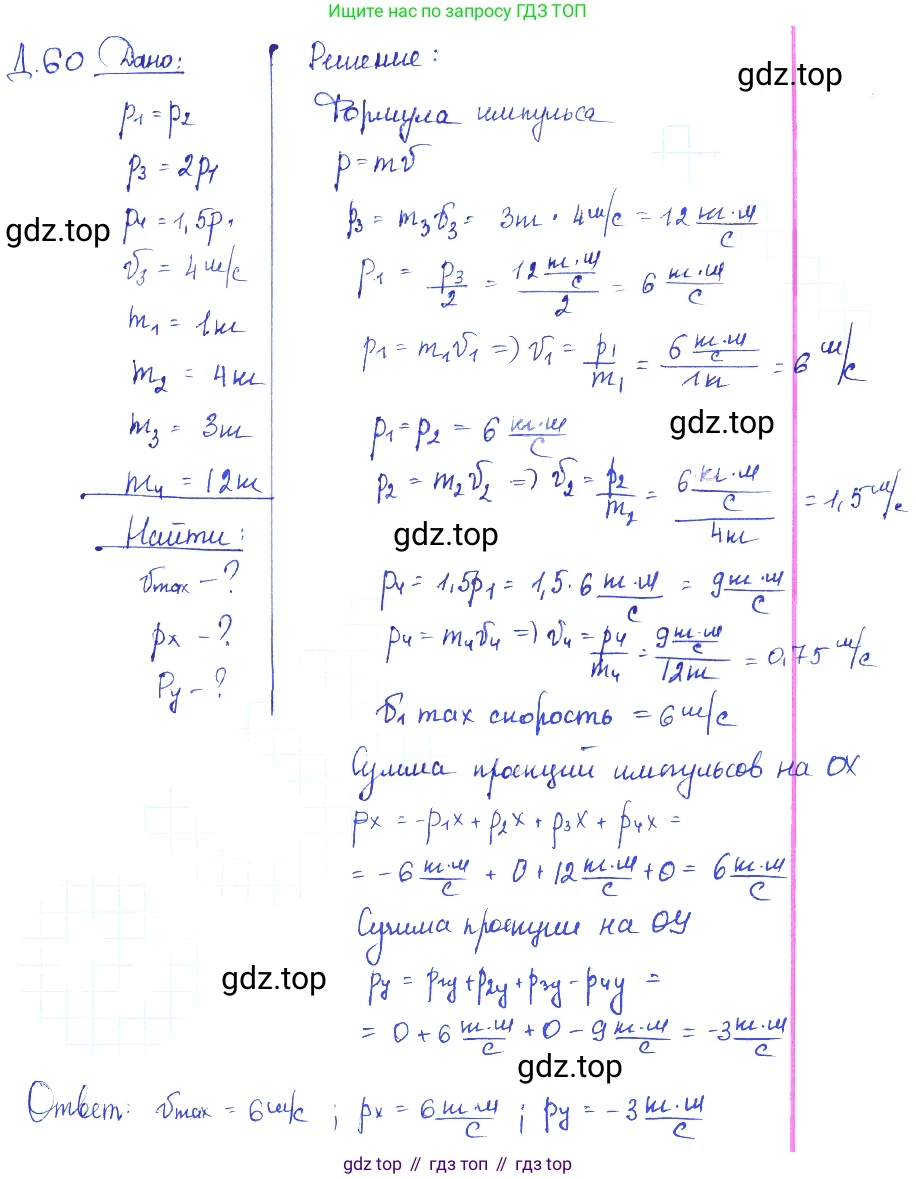 Ищите нас по запросу ГДЗ ТОП
Д.60 Дано:
p₁ = p₂
p₃ = 2p₁
p₄ = 1,5p₁
v₃ = 4 м/с
m₁ = 1кг
m₂ = 4кг
m₃ = 3кг
m₄ = 12кг
Найти:
v max – ?
px – ?
Py – ?
Решение:
gdz.top
Формула импульса
p = mv
gdz.top
p₃ = m₃v₃ = 3кг · 4 м/с = 12 кг·м/с
p₁ = p₃/2 = (12 кг·м/с)/2 = 6 кг·м/с
p₁ = m₁v₁ => v₁ = p₁/m₁ = (6 кг·м/с)/1кг = 6 м/с
p₁ = p₂ = 6 кг·м/с
gdz.top
p₂ = m₂v₂ => v₂ = p₂/m₂ = (6 кг·м/с)/4кг = 1,5 м/с
gdz.top
p₄ = 1,5p₁ = 1,5 · 6 кг·м/с = 9 кг·м/с
p₄ = m₄v₄ => v₄ = p₄/m₄ = (9 кг·м/с)/12кг = 0,75 м/с
v₁ max скорость = 6 м/с
Сумма проекций импульсов на OX
px = -p₁x + p₂x + p₃x + p₄x =
= -6 кг·м/с + 0 + 12 кг·м/с + 0 = 6 кг·м/с
Сумма проекции на OY
gdz.top
py = p₁y + p₂y + p₃y - p₄y =
= 0 + 6 кг·м/с + 0 - 9 кг·м/с = -3 кг·м/с
gdz.top
Ответ: v max = 6 м/с ; px = 6 кг·м/с ; py = -3 кг·м/с
gdz top // гдз топ // gdz.top